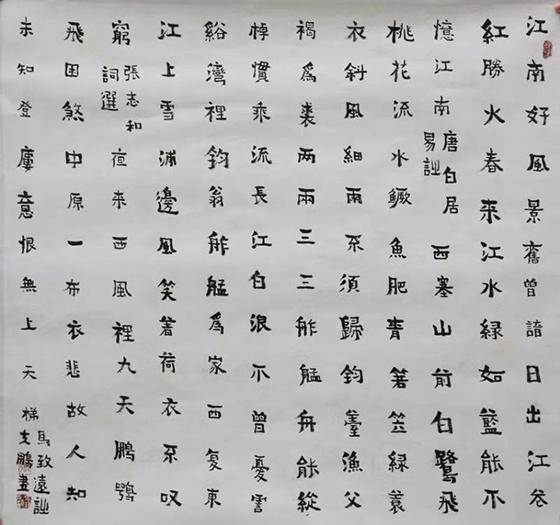 江南好風景舊曾諳日出江花
紅勝火春來江水緑如藍能不
憶江南
唐白居
易詞
西塞山前白鷺飛
桃花流水鱖魚肥青箬笠緑蓑
衣斜風細雨不須歸釣臺漁父
褐為裘两兩三三舴艋舟能縱
棹慣乘流長江白浪不曾憂霅
谿灣裡釣翁舴艋為家西復東
江上雪浦邊風笑著荷衣不叹
窮
張志和
詞選
夜來西風裡九天鵬鶚
飛困煞中原一布衣悲故人知
未知登樓意恨無上天梯
馬致遠詞
文鵬書